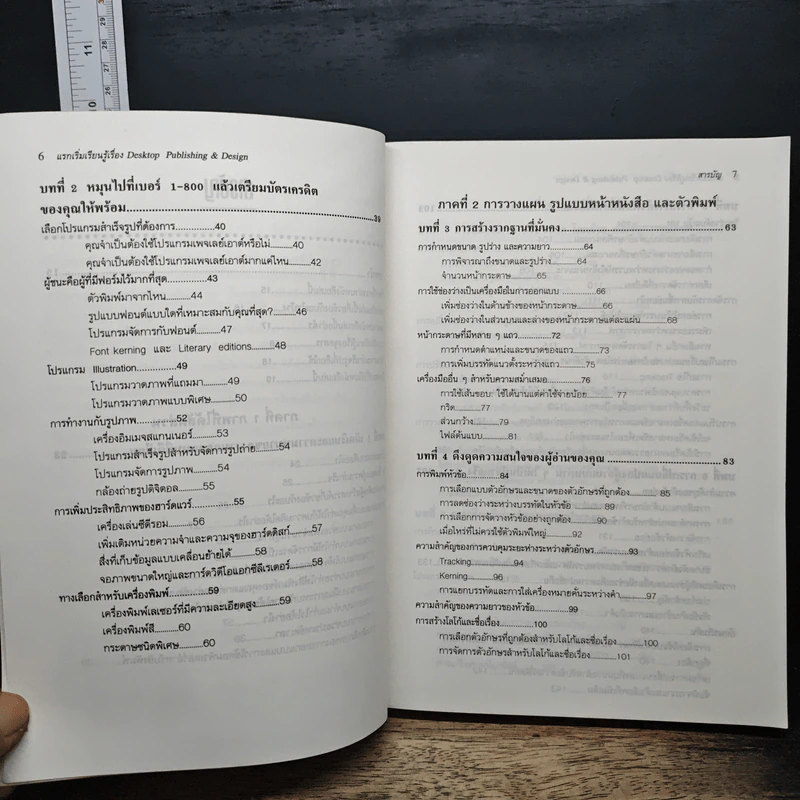 6 แรกเริ่มเรียนรู้เรื่อง Desktop Publishing & Design
บทที่ 2 หมุนไปที่เบอร์ 1-800 แล้วเตรียมบัตรเครดิต
ของคุณให้พร้อม 39
เลือกโปรแกรมสำเร็จรูปที่ต้องการ 40
คุณจำเป็นต้องใช้โปรแกรมเพจเลย์เอาต์หรือไม่ 40
คุณจำเป็นต้องใช้โปรแกรมเพจเลย์เอาต์มากแค่ไหน 42
ผู้ชนะคือผู้ที่มีฟอร์มไว้มากที่สุด 43
ตัวพิมพ์มาจากไหน 44
รูปแบบฟอนต์แบบใดที่เหมาะสมกับคุณที่สุด? 46
โปรแกรมจัดการกับฟอนต์ 47
Font kerning และ Literary editions 48
โปรแกรม Illustration 49
โปรแกรมวาดภาพที่แถมมา 49
โปรแกรมวาดภาพแบบพิเศษ 50
การทำงานกับรูปภาพ 52
เครื่องอิมเมจสแกนเนอร์ 53
โปรแกรมสำเร็จรูปสำหรับจัดการรูปถ่าย 54
โปรแกรมจัดการรูปภาพ 54
กล้องถ่ายรูปดิจิตอล 55
การเพิ่มประสิทธิภาพของฮาร์ดแวร์ 55
เครื่องเล่นซีดีรอม 56
เพิ่มเติมหน่วยความจำและความจุของฮาร์ดดิสก์ 57
สิ่งที่เก็บข้อมูลแบบเคลื่อนย้ายได้ 58
จอภาพขนาดใหญ่และการ์ดวิดีโอแอกซีลีเรเตอร์ 58
ทางเลือกสำหรับเครื่องพิมพ์ 59
เครื่องพิมพ์เลเซอร์ที่มีความละเอียดสูง 59
เครื่องพิมพ์สี 60
กระดาษชนิดพิเศษ 60
สารบัญ 7
ภาคที่ 2 การวางแผน รูปแบบหน้าหนังสือ และตัวพิมพ์
บทที่ 3 การสร้างรากฐานที่มั่นคง 63
การกำหนดขนาด รูปร่าง และความยาว 64
การพิจารณาถึงขนาดและรูปร่าง 64
จำนวนหน้ากระดาษ 65
การใช้ช่องว่างเป็นเครื่องมือในการออกแบบ 66
เพิ่มช่องว่างในด้านข้างของหน้ากระดาษ 66
เพิ่มช่องว่างในส่วนบนและล่างของหน้ากระดาษแต่ละแผ่น 68
หน้ากระดาษที่มีหลาย ๆ แถว 72
การกำหนดตำแหน่งและขนาดของแถว 73
การเพิ่มบรรทัดแนวตั้งระหว่างแถว 75
เครื่องมืออื่น ๆ สำหรับความสม่ำเสมอ 76
การใช้เส้นขอบ: ใช้ได้นานแต่ค่าใช้จ่ายน้อย 77
กริด 77
ส่วนกว้าง 79
ไฟล์ต้นแบบ 81
บทที่ 4 ดึงดูดความสนใจของผู้อ่านของคุณ 83
การพิมพ์หัวข้อ 84
การเลือกแบบตัวอักษรและขนาดของตัวอักษรที่ถูกต้อง 85
การลดช่องว่างระหว่างบรรทัดในหัวข้อ 89
การเลือกการจัดวางหัวข้ออย่างถูกต้อง 90
เมื่อไหร่ที่ไม่ควรใช้ตัวพิมพ์ใหญ่ 92
ความสำคัญของการควบคุมระยะห่างระหว่างตัวอักษร 93
Tracking 94
Kerning 96
การแยกบรรทัดและการใส่เครื่องหมายคั่นระหว่างคำ 97
ความสำคัญของความยาวของหัวข้อ 99
การสร้างโลโก้และชื่อเรื่อง 100
การเลือกตัวอักษรที่ถูกต้องสำหรับโลโก้และชื่อเรื่อง 100
การจัดการตัวอักษรสำหรับโลโก้และชื่อเรื่อง 101